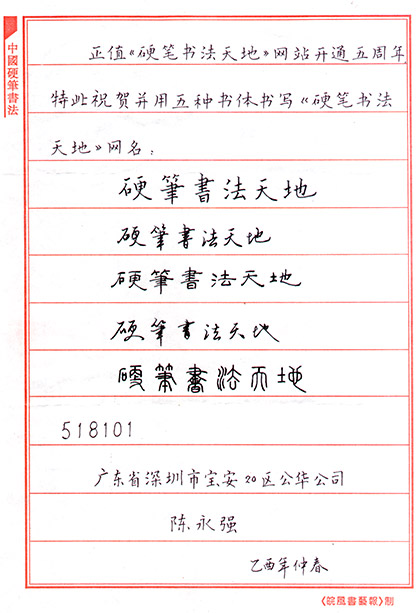 中國硬筆書法
正值《硬笔书法天地》网站开通五周年
特此祝贺并用五种书体书写《硬笔书法
天地》网名：
硬筆書法天地
硬筆書法天地
硬筆書法天地
硬筆書法天地
硬筆書法天地
518101
广东省深圳市宝安20区公华公司
陈永强
乙酉年仲春
《皖風書藝報》制